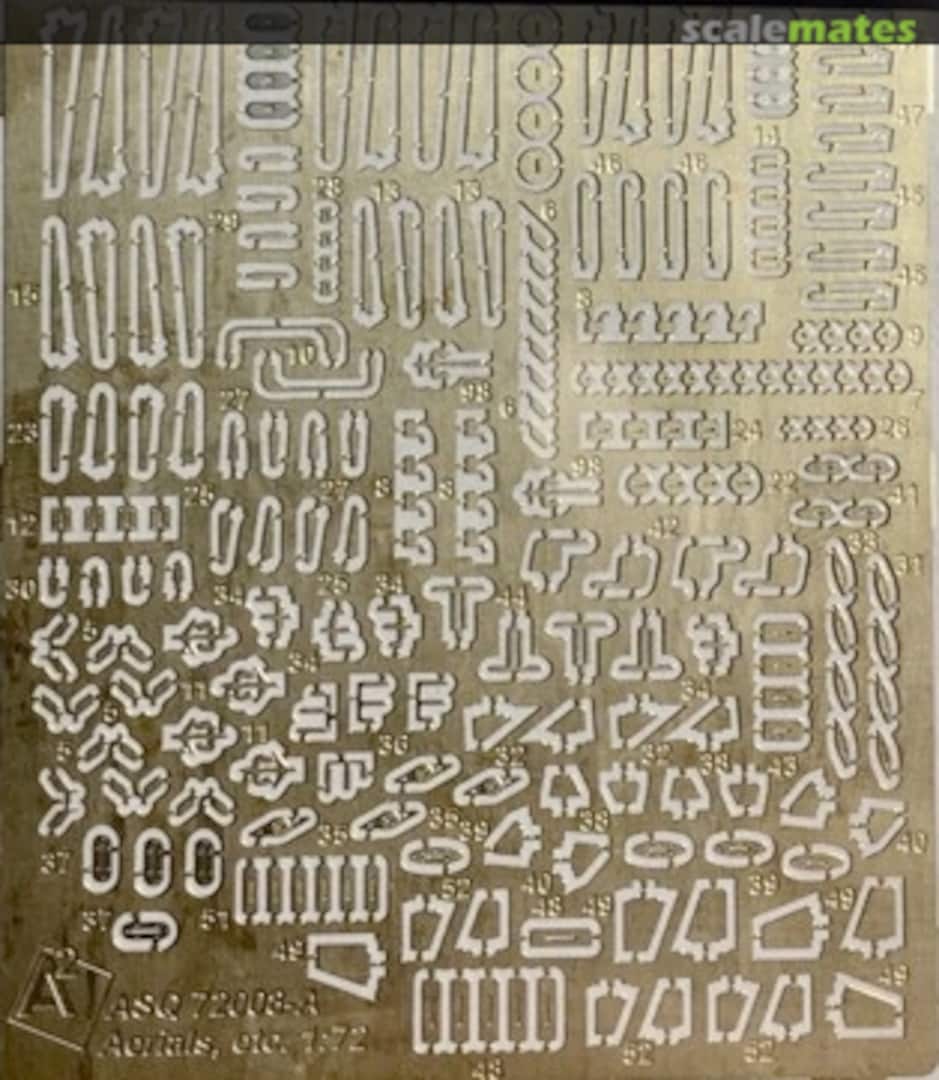 scalemates
47
14
46 46
28 13 13
45
6
29
15
45
3
9
10
98
7
27 6
23
24 26
98
22
25 27 8 8
41
12
42
33
31
30
34 25 34
44
5
11
5
11
36
5
32 32 33 43
35 35
39
40
37
52 40 39
48 49 49
37 51
49
A²
49
ASQ 72008-A
Aerials, etc. 1:72
52 52
48